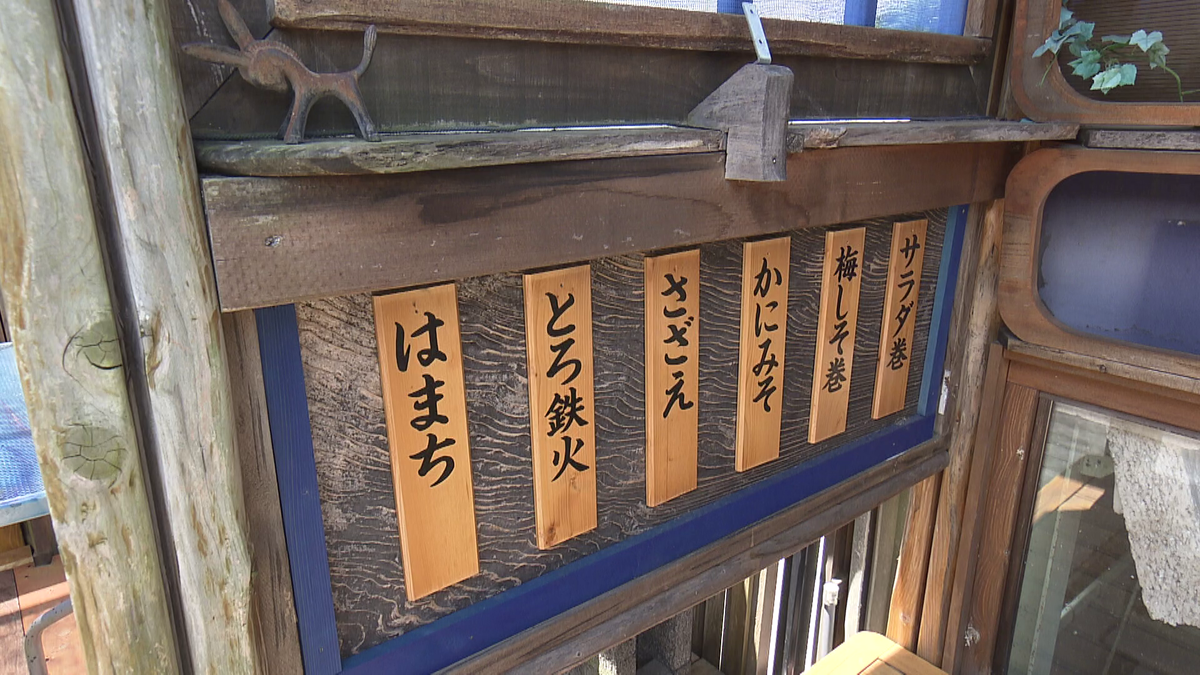 サラダ巻
梅しそ巻
かにみそ
さざえ
とろ鉄火
はまち